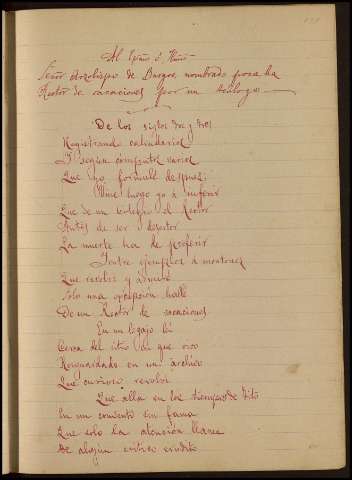 Al Exmo é Illmo
Señor Arzobispo de Burgos, nombrado para ha
Rector de vacaciones por un teólogo
De los siglos dos y tres
Registrando calendarios
Y según conjuntos varios
Que yo formulé después:
Vine luego yo á inferir
Que de un colegio el Rector
Antes de ser desertor
La muerte ha de preferir
Y entre ejemplos á montones
Que revolví y
Solo una excepción hallé
De un Rector de vacaciones
En un legajo leí
Cerca del sitio en que vivo
Resguardado en un archivo
Que curioso revolví
Que alla en los tiempos de Tito
En un convento sin fama
Que solo la atención llama
De algún crítico erudito